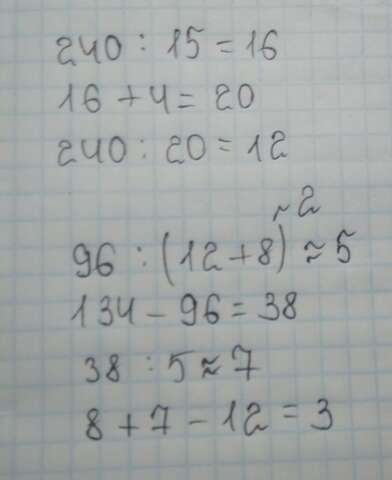 240 : 15 = 16
16 + 4 = 20
240 : 20 = 12
~2
96 : (12+8) ≈ 5
134 - 96 = 38
38 : 5 ≈ 7
8 + 7 - 12 = 3